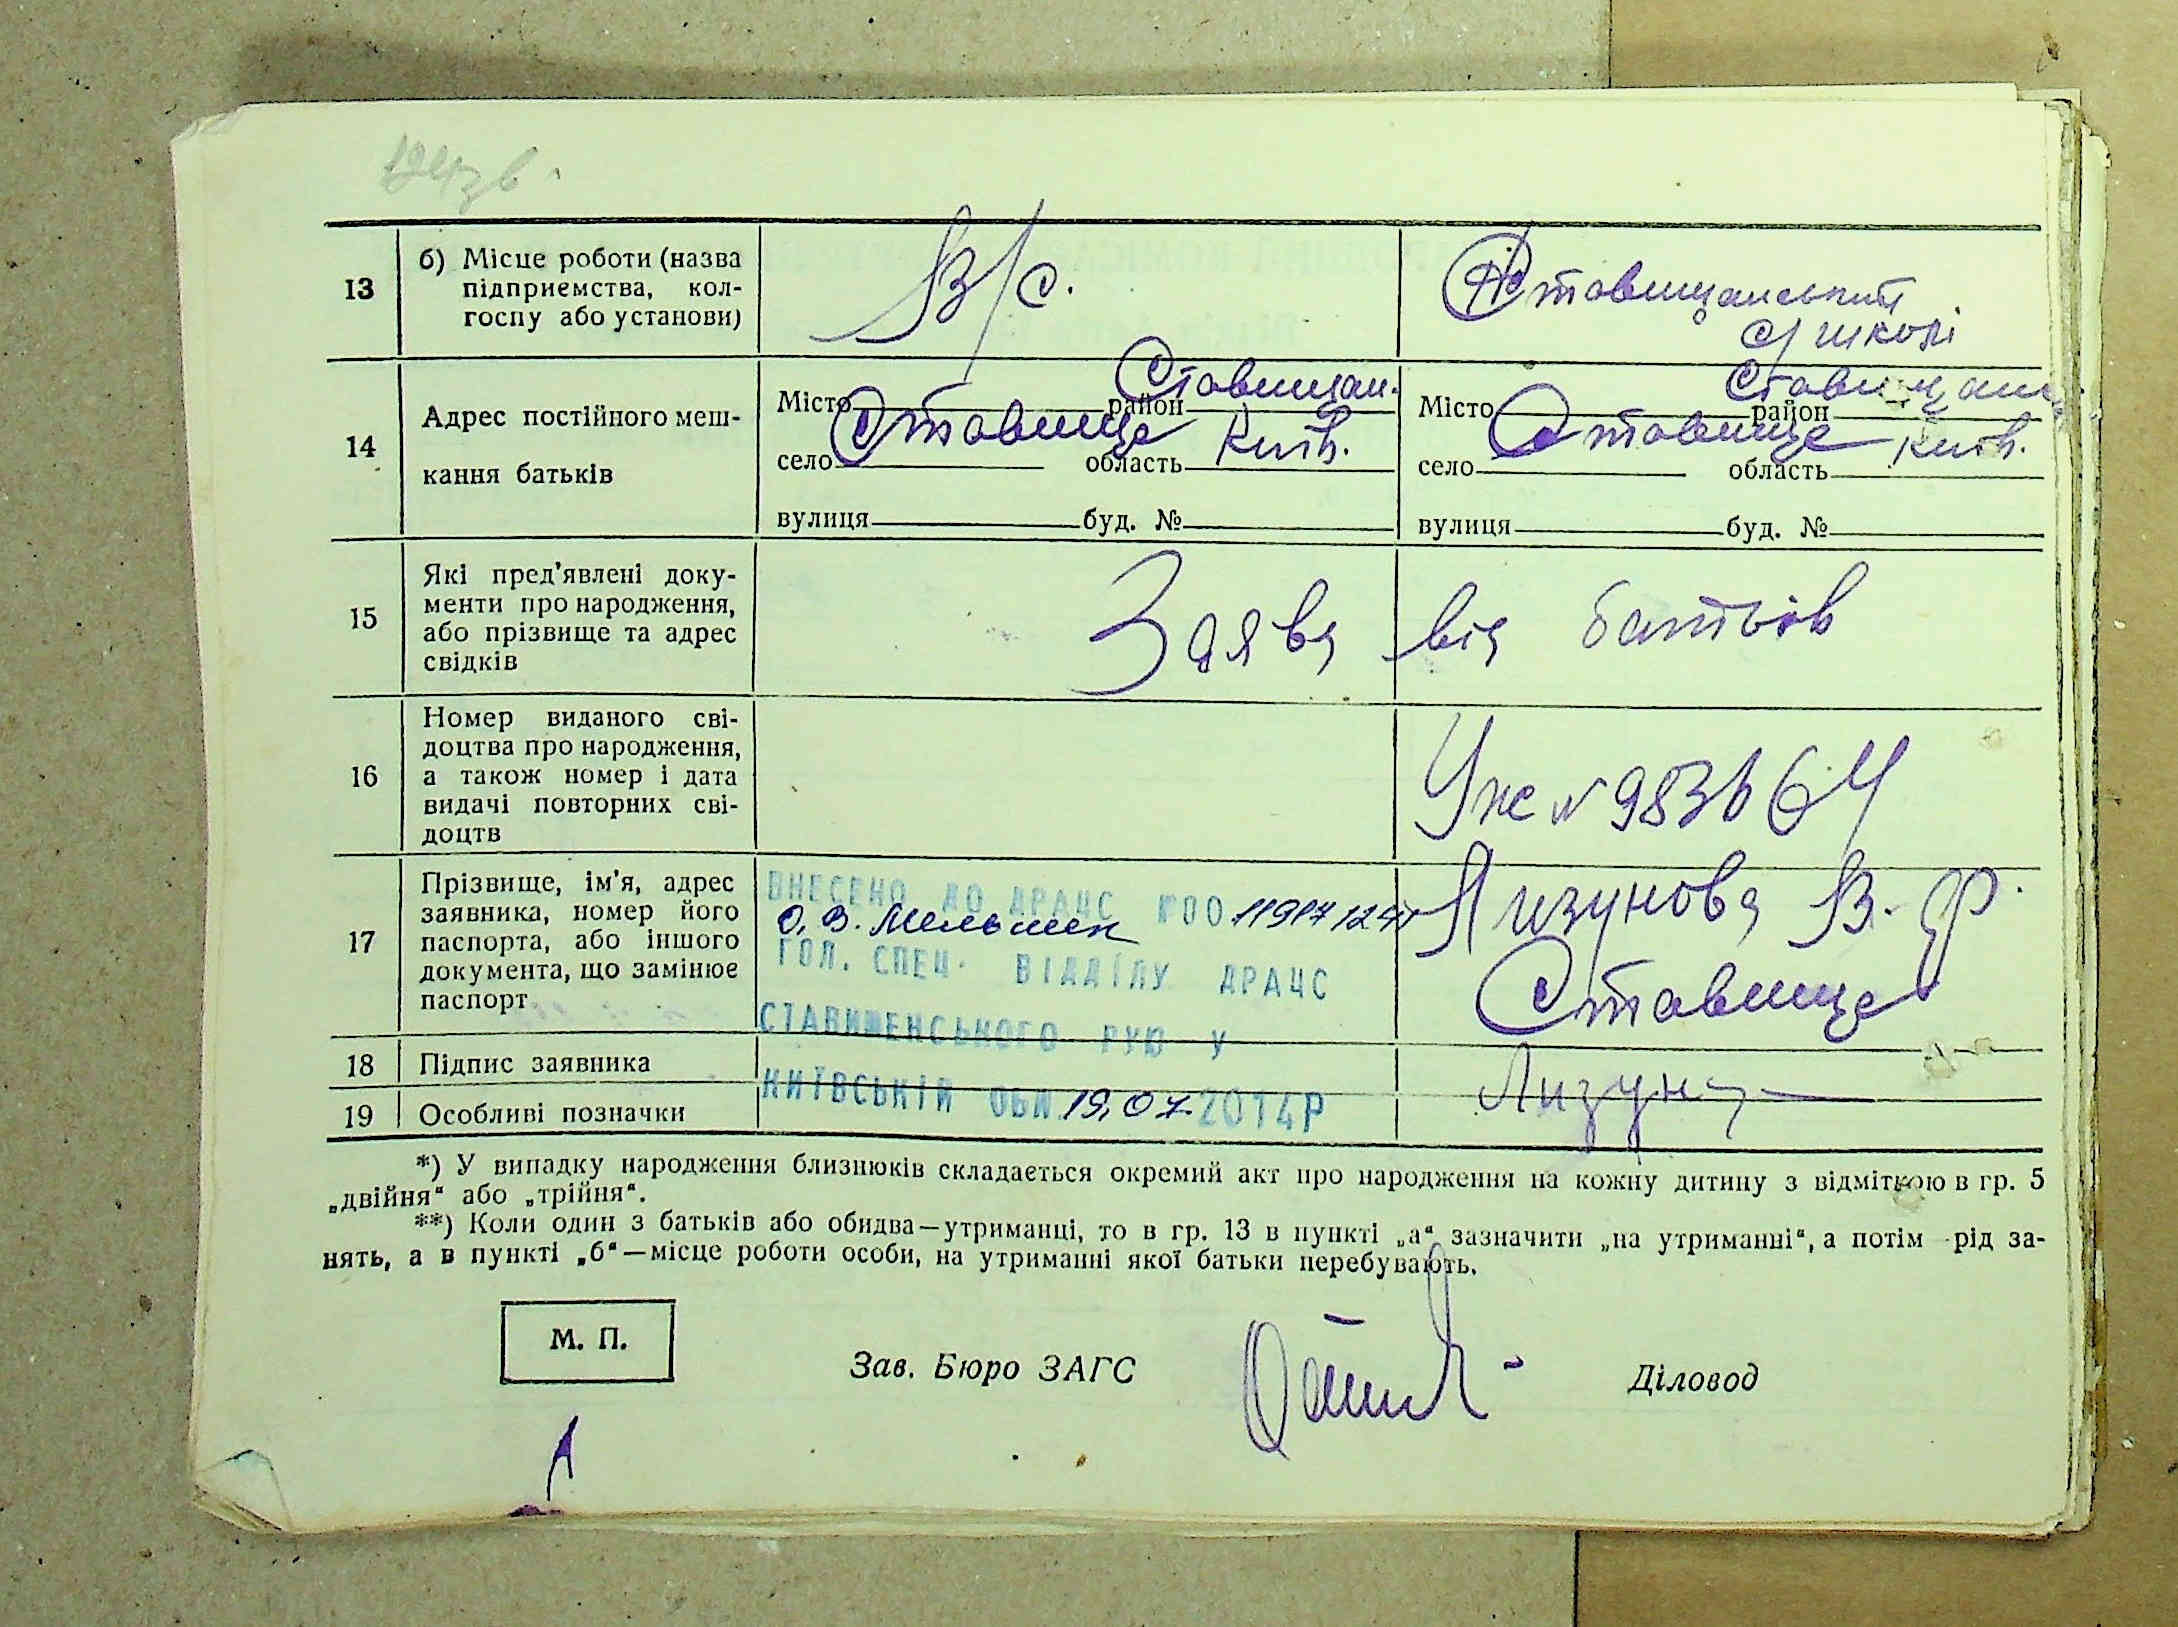 124зв.
13
б) Місце роботи (назва
підприємства, кол-
госпу або установи)
В/с.
Ставищанській
с/школі
14
Адрес постійного меш-
кання батьків
Місто район Ставищан.
Ставище
село область Київ.
вулиця буд. №
Місто район Ставищан.
Ставище
село область Київ.
вулиця буд. №
15
Які пред'явлені доку-
менти про народження,
або прізвище та адрес
свідків
Заява від батьків
16
Номер виданого сві-
доцтва про народження,
а також номер і дата
видачі повторних сві-
доцтв
№
17
Прізвище, ім'я, адрес
заявника, номер його
паспорта, або іншого
документа, що замінює
паспорт
ВНЕСЕНО ДО ДРАЦС
О.В. Мельник
ГОЛ. СПЕЦ. ВІДДІЛУ ДРАЦС
СТАВИЩЕНСЬКОГО РУЮ У
КИЇВСЬКІЙ ОБЛ. 19.07.2014Р
Лизунова В. Ф.
Ставище
18
Підпис заявника
19
Особливі позначки
*) У випадку народження близнюків складається окремий акт про народження на кожну дитину з відміткою в гр. 5
„двійня“ або „трійня“.
**) Коли один з батьків або обидва—утриманці, то в гр. 13 в пункті „а“ зазначити „на утриманні“, а потім рід за-
нять, а в пункті „б“—місце роботи особи, на утриманні якої батьки перебувають.
М. П.
Зав. Бюро ЗАГС
Діловод